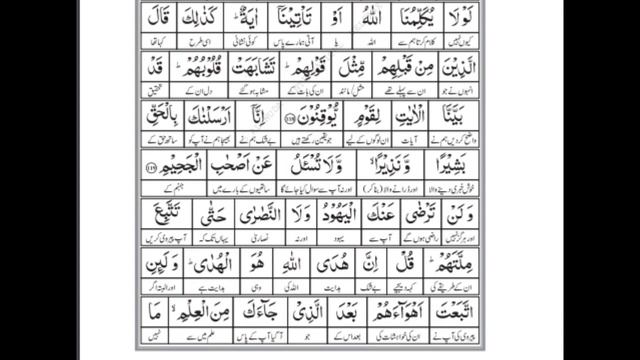 لَوْلَا يُكَلِّمُنَا اللّٰهُ اَوْ تَاْتِيْنَاۤ اٰيَةٌ ؕ كَذٰلِكَ قَالَ
کیوں نہیں کلام کرتا ہم سے اللہ یا آتی ہمارے پاس کوئی نشانی اسی طرح کہا تھا
الَّذِيْنَ مِنْ قَبْلِهِمْ مِّثْلَ قَوْلِهِمْ ؕ تَشَابَهَتْ قُلُوْبُهُمْ ؕ قَدْ
انہوں نے جو ان سے پہلے تھے مثل/مانند ان کی بات کے مشابہ ہو گئے دل ان کے تحقیق
بَيَّنَّا الْاٰيٰتِ لِقَوْمٍ يُّوْقِنُوْنَ ﴿۱۱۸﴾ اِنَّاۤ اَرْسَلْنٰكَ بِالْحَقِّ
واضح کر دیں ہم نے آیات ان لوگوں کے لیے جو یقین رکھتے ہیں بے شک ہم نے بھیجا ہم نے آپ کو ساتھ حق کے
بَشِيْرًا وَّ نَذِيْرًا ۙ وَّ لَا تُسْـَٔلُ عَنْ اَصْحٰبِ الْجَحِيْمِ ﴿۱۱۹﴾
خوش خبری دینے والا اور ڈرانے والا (بنا کر) اور نہ آپ سے سوال کیا جائے گا ساتھیوں کے بارے میں جہنم کے
وَ لَنْ تَرْضٰى عَنْكَ الْيَهُوْدُ وَ لَا النَّصٰرٰى حَتّٰى تَتَّبِعَ
اور ہرگز نہیں راضی ہوں گے آپ سے یہود اور نہ نصاریٰ یہاں تک کہ آپ پیروی کریں
مِلَّتَهُمْ ؕ قُلْ اِنَّ هُدَى اللّٰهِ هُوَ الْهُدٰى ؕ وَ لَىِٕنِ
ان کے طریقے کی کہہ دیجیے بے شک ہدایت اللہ کی وہی ہدایت ہے اور البتہ اگر
اتَّبَعْتَ اَهْوَآءَهُمْ بَعْدَ الَّذِيْ جَآءَكَ مِنَ الْعِلْمِ ۙ مَا
پیروی کی آپ نے ان کی خواہشات کی بعد اس کے جو آ گیا آپ کے پاس علم میں سے نہیں